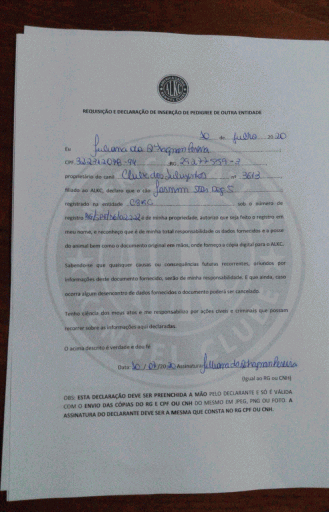 ALKC
REQUISIÇÃO E DECLARAÇÃO DE INSERÇÃO DE PEDIGREE DE OUTRA ENTIDADE
10 de Julho 20 20
Eu Juliana da Pereira
CPF RG
proprietário do canil Clube dos nº 3613
filiado ao ALKC, declaro que o cão
registrado na entidade sob o número de
registro é de minha propriedade, autorizo que seja feito o registro em
meu nome, e reconheço que é de minha total responsabilidade os dados fornecidos e a posse
do animal bem como o documento original em mãos, onde forneço a cópia digital para o ALKC.
Sabendo-se que quaisquer causas ou consequências futuras recorrentes, oriundas por
informações deste documento fornecido, serão de minha responsabilidade. E que ainda, caso
ocorra algum desencontro de dados fornecidos o documento poderá ser cancelado.
Tenho ciência dos meus atos e me responsabilizo por ações cíveis e criminais que possam
recorrer sobre as informações aqui declaradas.
O acima descrito é verdade e dou fé
Data 10 / 07 / 20 20 Assinatura Juliana da Pereira
(Igual ao RG ou CNH)
OBS: ESTA DECLARAÇÃO DEVE SER PREENCHIDA A MÃO PELO DECLARANTE E SÓ É VÁLIDA
COM O ENVIO DAS CÓPIAS DO RG E CPF OU CNH DO MESMO EM JPEG, PNG OU FOTO. A
ASSINATURA DO DECLARANTE DEVE SER A MESMA QUE CONSTA NO RG E CPF OU CNH.